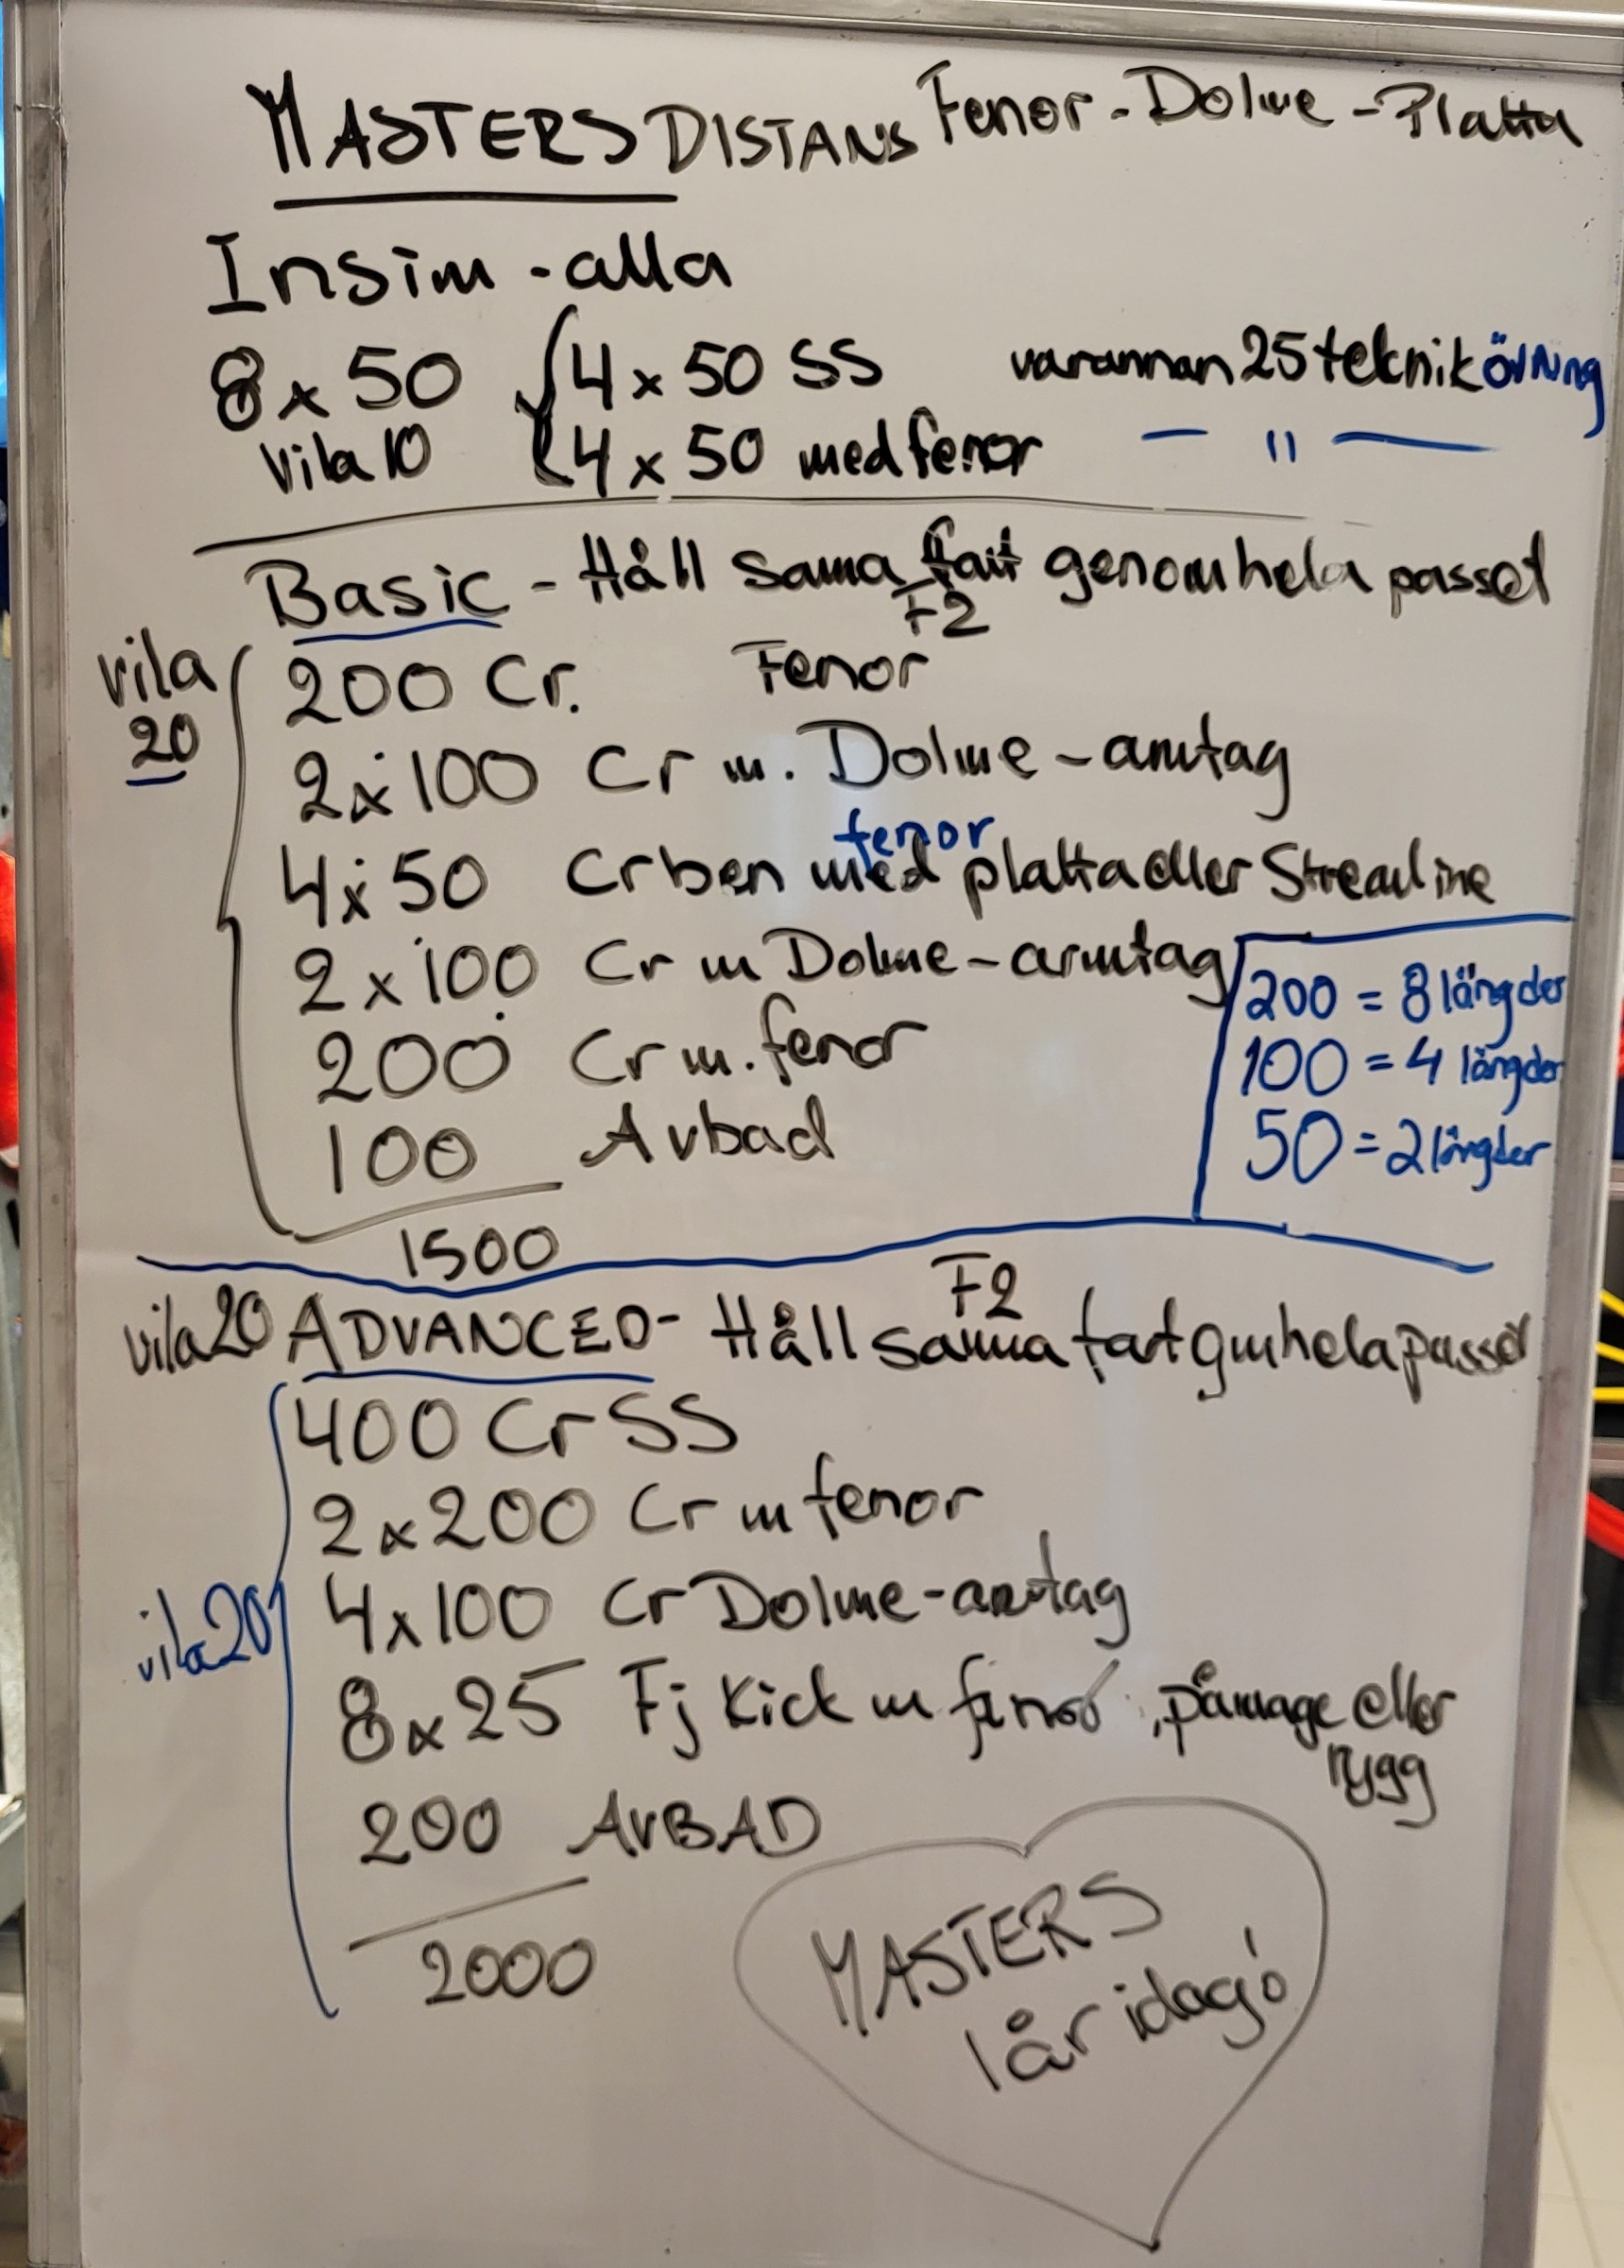 MASTERS DISTANS Fenor - Dolme - Platta
Insim - alla
8 x 50 { 4 x 50 SS varannan 25 teknikövning
vila 10 { 4 x 50 med fenor — " —
Basic - Håll samma fart genom hela passet
F2
vila 20
200 Cr. Fenor
2 x 100 Cr m. Dolme - armtag
4 x 50 Cr ben med fenor platta eller Streamline
2 x 100 Cr m Dolme - armtag
200 Cr m. fenor
100 Avbad
1500
200 = 8 längder
100 = 4 längder
50 = 2 längder
F2
vila 20 ADVANCED - Håll samma fart gm hela passet
400 Cr SS
2 x 200 Cr m fenor
vila 20 4 x 100 Cr Dolme - armtag
8 x 25 Fj Kick m fenor, på mage eller rygg
200 AVBAD
2000
MASTERS
1 år idag!